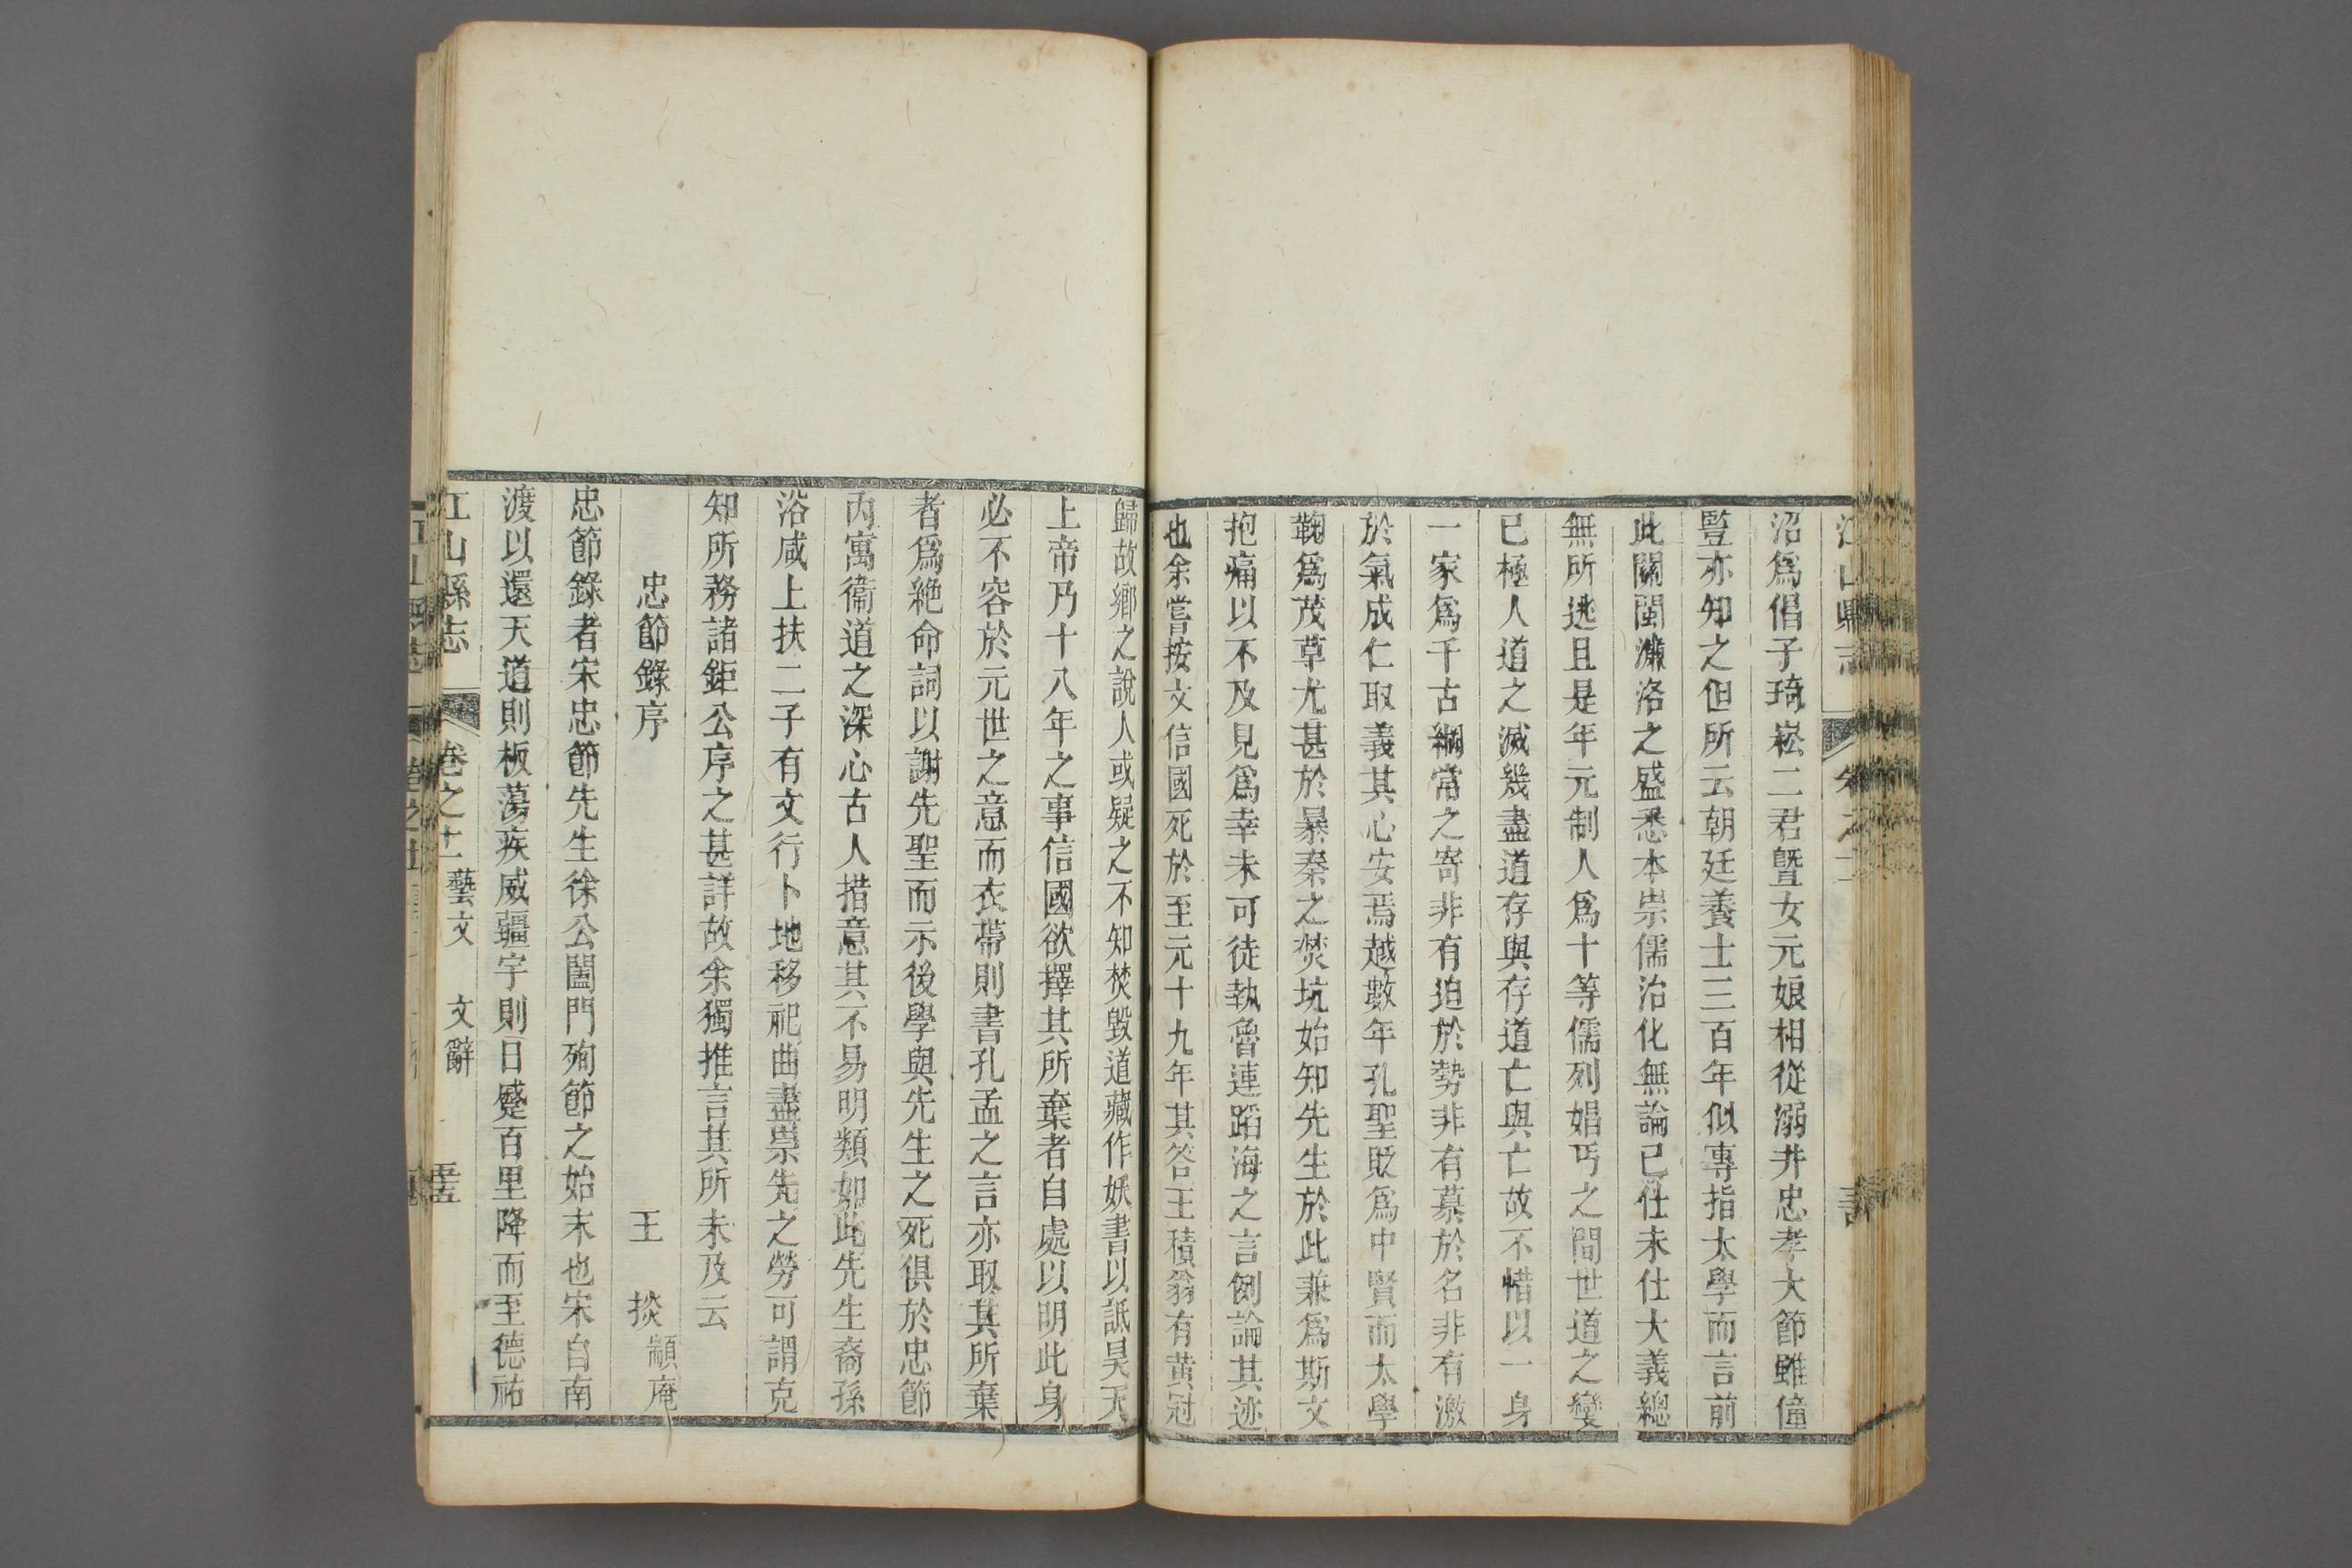 沼爲倡子琦崧二君曁女元娘相從溺井忠孝大節雖僮
豎亦知之但所云朝廷養士三百年似專指太學而言前
此關閩濂洛之盛悉本崇儒治化無論已仕未仕大義總
無所逃且是年元制人爲十等儒列娼丐之間世道之變
已極人道之滅幾盡道存與存道亡與亡故不惜以一身
一家爲千古綱常之寄非有迫於勢非有慕於名非有激
於氣成仁取義其心安焉越數年孔聖貶爲中賢而太學
鞠爲茂草尤甚於暴秦之焚坑始知先生於此兼爲斯文
抱痛以不及見爲幸未可徒執魯連蹈海之言例論其迹
也余嘗按文信國死於至元十九年其答王積翁有黃冠
歸故鄉之說人或疑之不知焚毀道藏作妖書以詆昊天
上帝乃十八年之事信國欲擇其所棄者自處以明此身
必不容於元世之意而衣帶則書孔孟之言亦取其所棄
者爲絶命詞以謝先聖而示後學與先生之死俱於忠節
內寓衞道之深心古人措意其不易明類如此先生裔孫
浴咸上扶二子有文行卜地移祀曲盡崇先之勞可謂克
知所務諸鉅公序之甚詳故余獨推言其所未及云
忠節錄序
王 掞 顓庵
忠節錄者宋忠節先生徐公闔門殉節之始末也宋自南
渡以還天道則板蕩疾威疆宇則日蹙百里降而至德祐
江山縣志 卷之十一 藝文 文辭